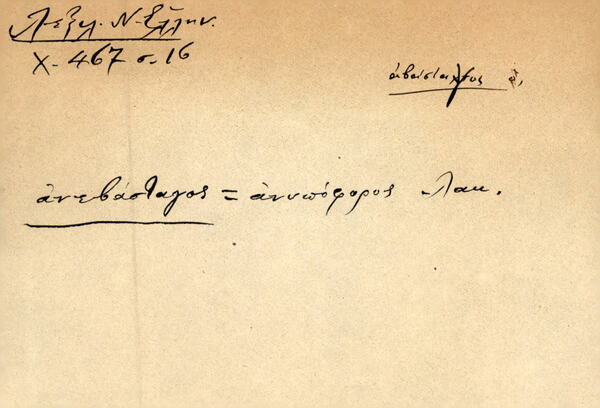 Λεξιλ. Ν-Ἑλλην.
Χ. 467 σ. 16
ἀβάσταχτος
ἀνεβάσταγος = ἀνυπόφορος Λακ.